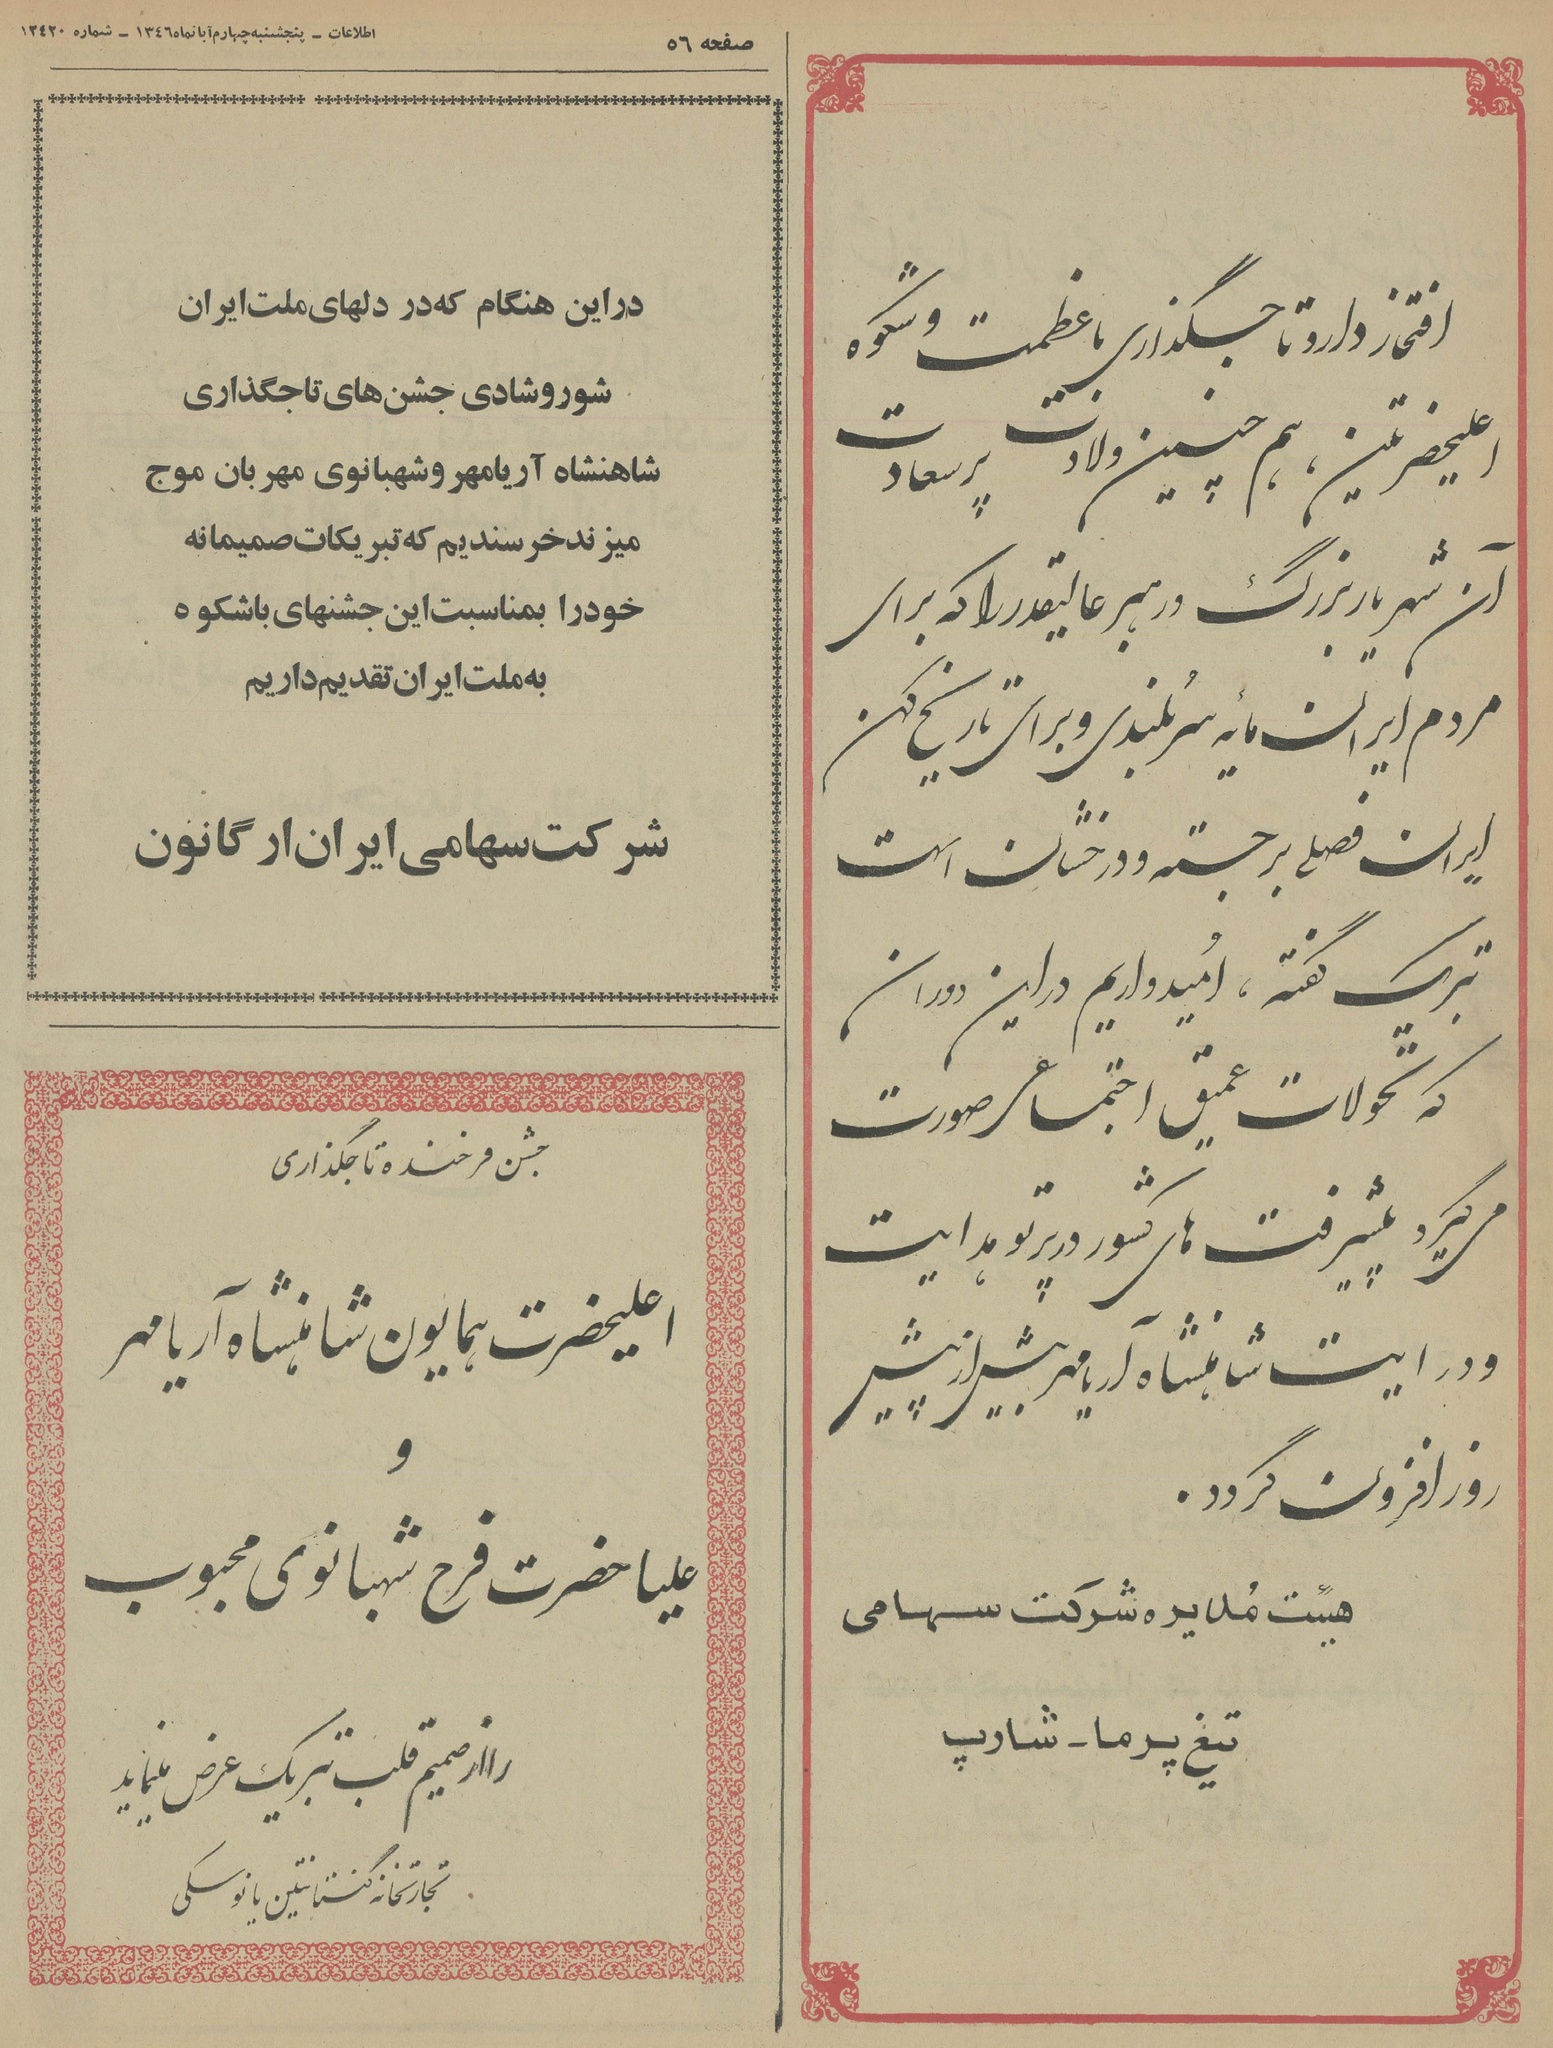 صفحه ٥٦
اطلاعات ـ پنجشنبه چهارم آبانماه ١٣٤٦ ـ شماره ١٢٤٢٠
افتخار دارد تاجگذاری باعظمت وشکوه
اعلیحضرتین ، هم چنین ولادت پرسعادت
آن شهریار بزرگ ورهبر عالیقدر را که برای
مردم ایران مایه سربلندی و برای تاریخ کهن
ایران فصلی برجسته ودرخشان است
تبریک گفته ، امیدواریم دراین دوران
که تحولات عمیق اجتماعی صورت
می گیرد پیشرفت های کشور درپرتو هدایت
ودرایت شاهنشاه آریامهر بیش از پیش
روزافزون گردد .
هیئت مدیره شرکت سهامی
تیغ پرما ـ شارپ
دراین هنگام که در دلهای ملت ایران
شوروشادی جشن های تاجگذاری
شاهنشاه آریامهر وشهبانوی مهربان موج
میزند خرسندیم که تبریکات صمیمانه
خودرا بمناسبت این جشنهای باشکوه
به ملت ایران تقدیم داریم
شرکت سهامی ایران ارگانون
جشن فرخنده تاجگذاری
اعلیحضرت همایون شاهنشاه آریامهر
و
علیاحضرت فرح شهبانوی محبوب
را از صمیم قلب تبریک عرض مینماید
تجارتخانه کنستانتین یانوسکی